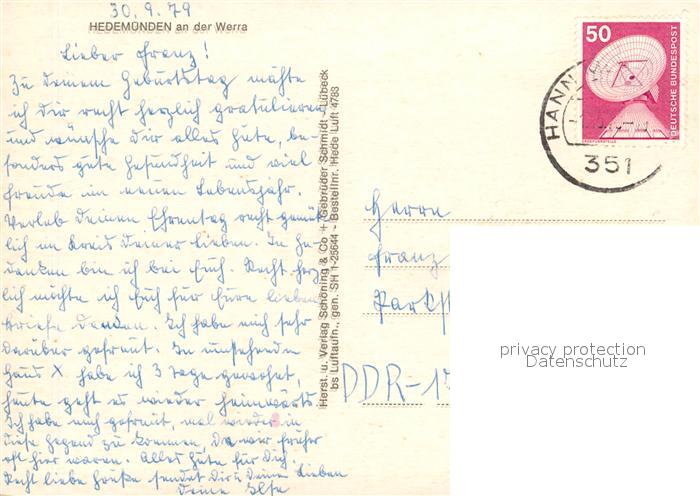 30.9.79
HEDEMÜNDEN an der Werra
Lieber Franz!
Zu deinem Geburtstag möchte
ich dir recht herzlich gratulieren
und wünsche dir alles Gute, be-
sonders gute Gesundheit und viel
Freude im neuen Lebensjahr.
Verleb deinen Ehrentag recht gemüt-
lich im Kreis deiner Lieben. In Ge-
danken bin ich bei Euch. Recht herz-
lich möchte ich Euch für Eure lieben
Briefe danken. Ich habe mich sehr
darüber gefreut. Im umstehenden
Haus X habe ich 3 Tage gewohnt,
heute geht es wieder heimwärts.
Ich habe mich gefreut, mal wieder in
diese Gegend zu kommen. Da wir früher
oft hier waren. Alles Gute für Dich.
Recht liebe Grüße sendet Dir u. Deine Lieben
Deine Ilse
Herst. u. Verlag Schöning & Co + Gebrüder Schmidt - Lübeck
bs Luftaufn., gen. SH 1-25644 - Bestellnr. Hede Luft 4783
50
DEUTSCHE BUNDESPOST
HANN
351
Herrn
Franz
Parkst
DDR-1
privacy protection
Datenschutz